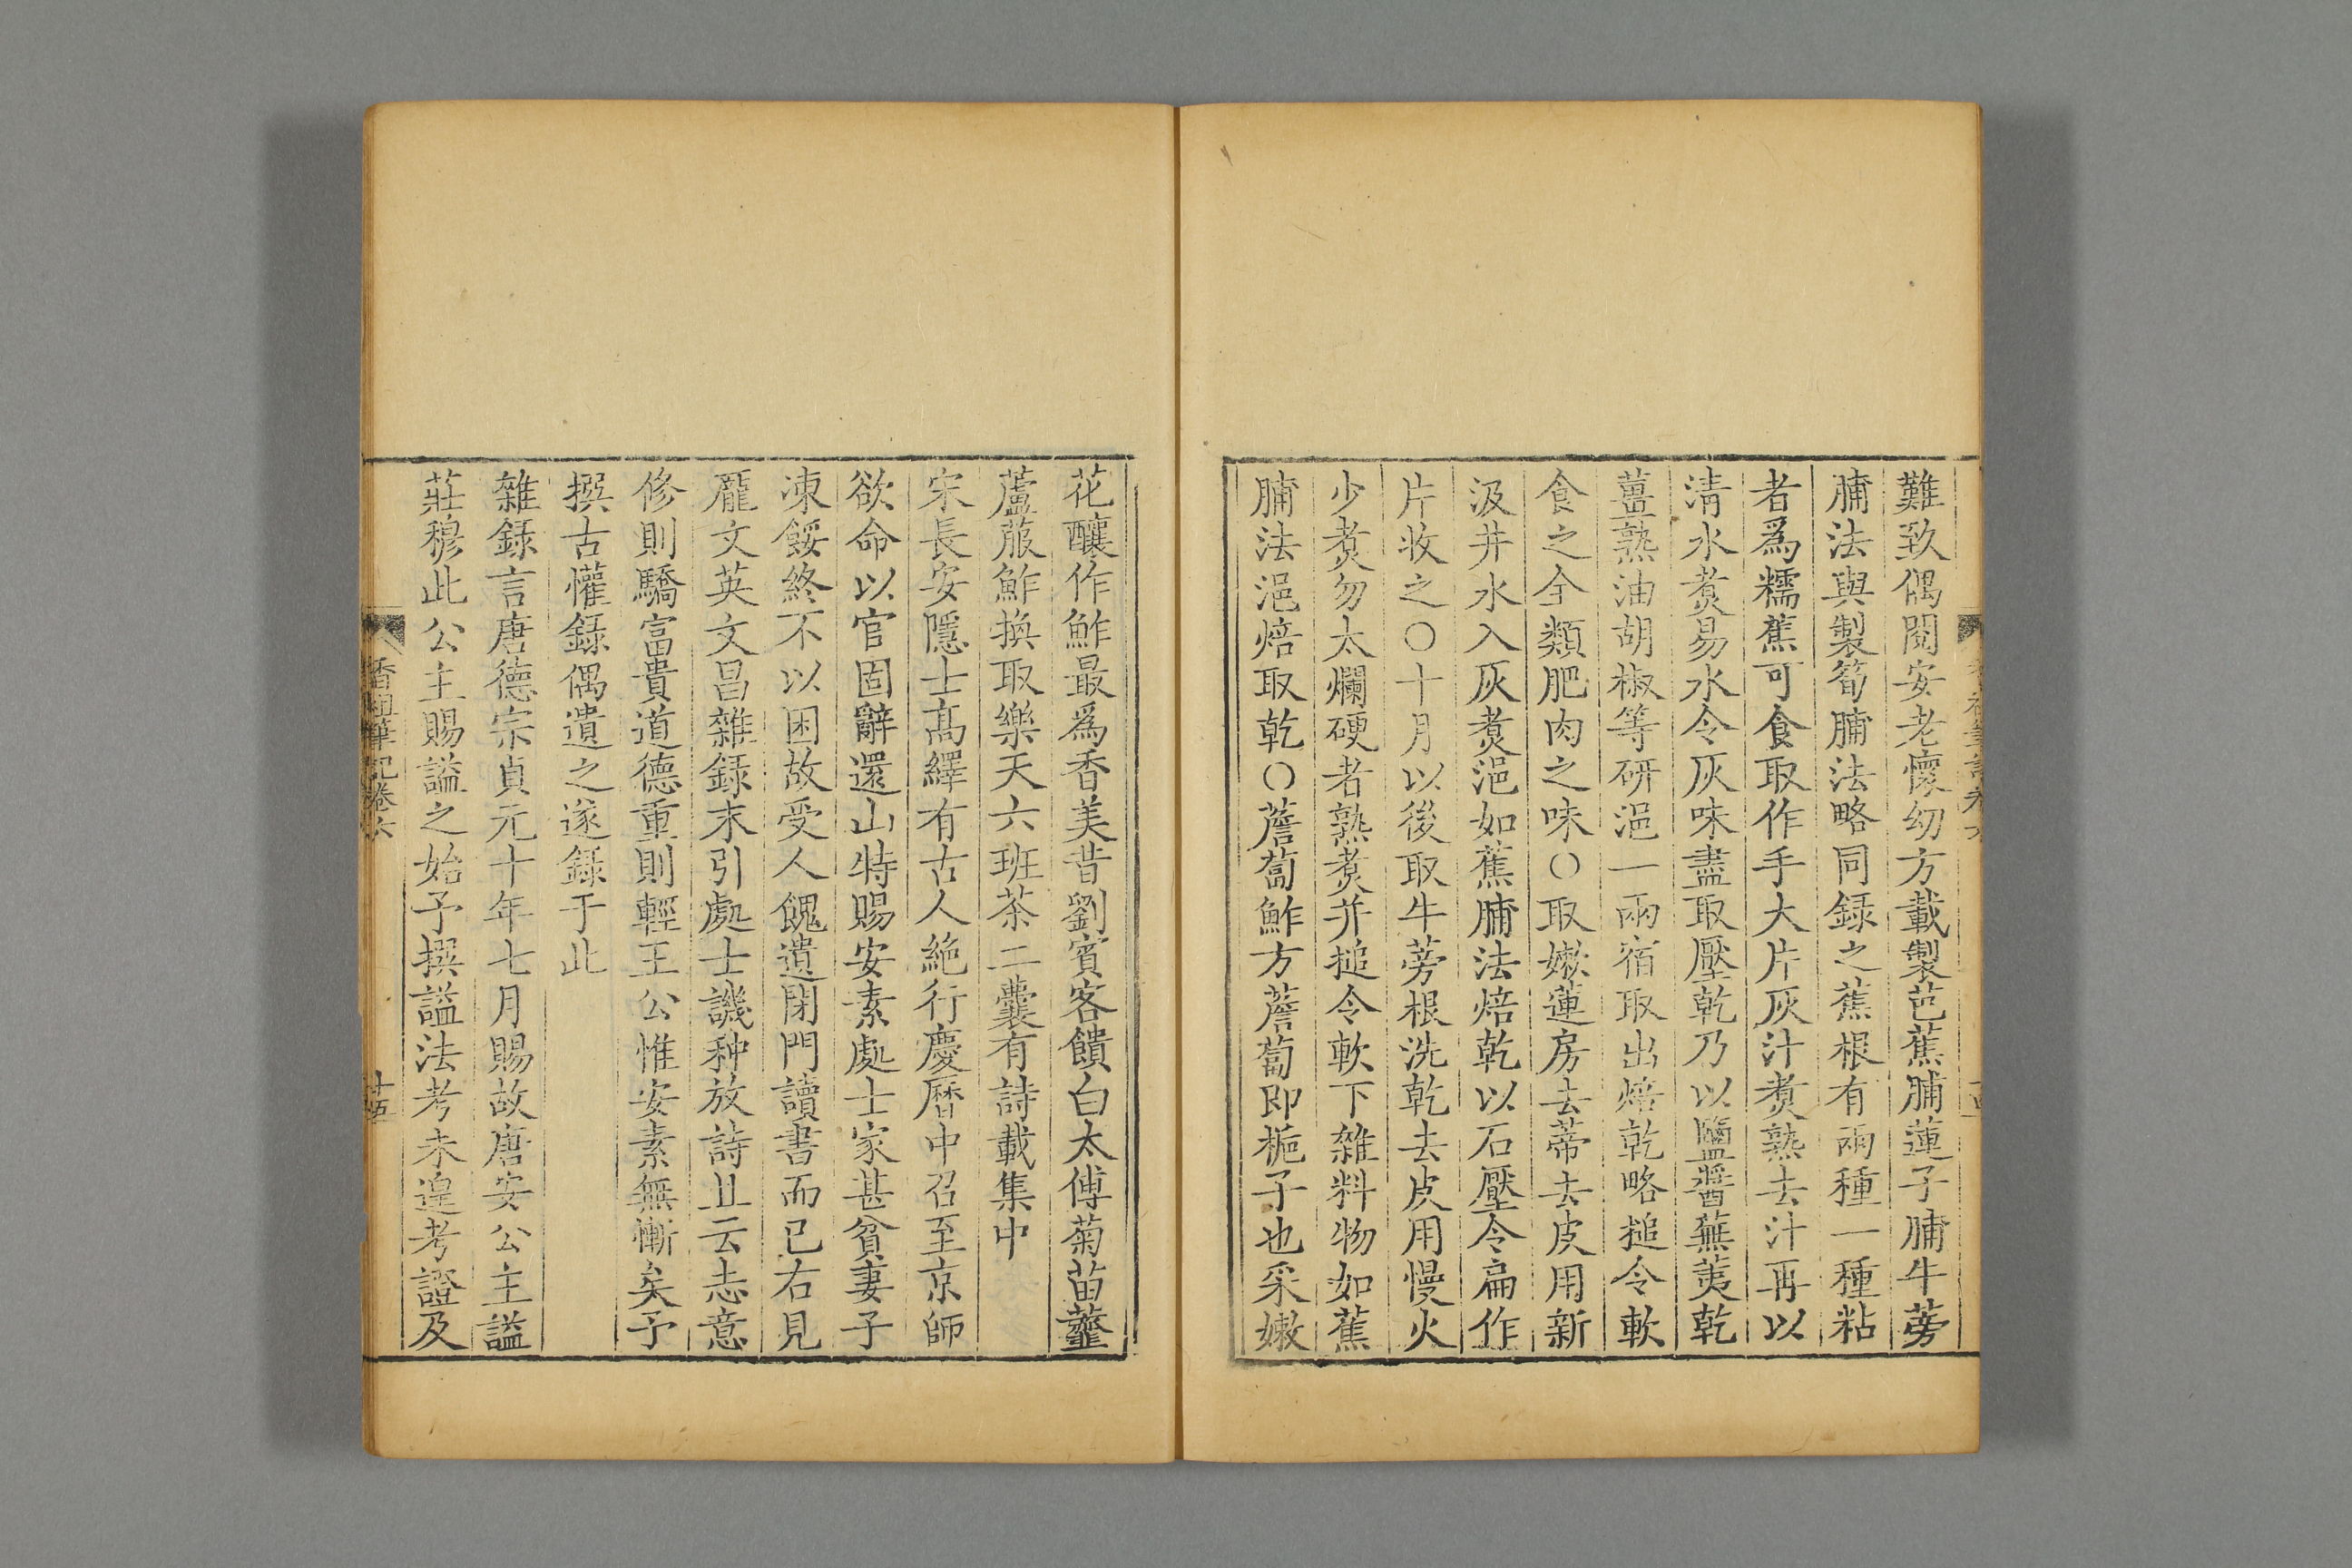 難致偶閱安老懷幼方載製芭蕉脯蓮子脯牛蒡
脯法與製筍脯法略同録之蕉根有兩種一種粘
者爲糯蕉可食取作手大片灰汁煑熟去汁再以
清水煑易水令灰味盡取壓乾乃以鹽醬蕪荑乾
薑熟油胡椒等研浥一兩宿取出焙乾略搥令軟
食之全類肥肉之味〇取嫩蓮房去蒂去皮用新
汲井水入灰煑浥如蕉脯法焙乾以石壓令扁作
片收之〇十月以後取牛蒡根洗乾去皮用慢火
少煑勿太爛硬者熟煑并搥令軟下雜料物如蕉
脯法浥焙取乾〇薝蔔鮓方薝蔔即梔子也采嫩
花釀作鮓最爲香美昔劉賓客饋白太傅菊苗虀
蘆菔鮓換取樂天六班茶二囊有詩載集中
宋長安隱士高繹有古人絶行慶曆中召至京師
欲命以官固辭還山特賜安素處士家甚貧妻子
凍餒終不以困故受人餽遺閉門讀書而已右見
龎文英文昌雜録末引處士譏种放詩𠀋云志意
修則驕富貴道德重則輕王公惟安素無慚矣予
撰古懽録偶遺之遂録于此
雜録言唐德宗貞元十年七月賜故唐安公主謚
莊穆此公主賜謚之始予撰謚法考未遑考證及
香祖筆記卷六
十五